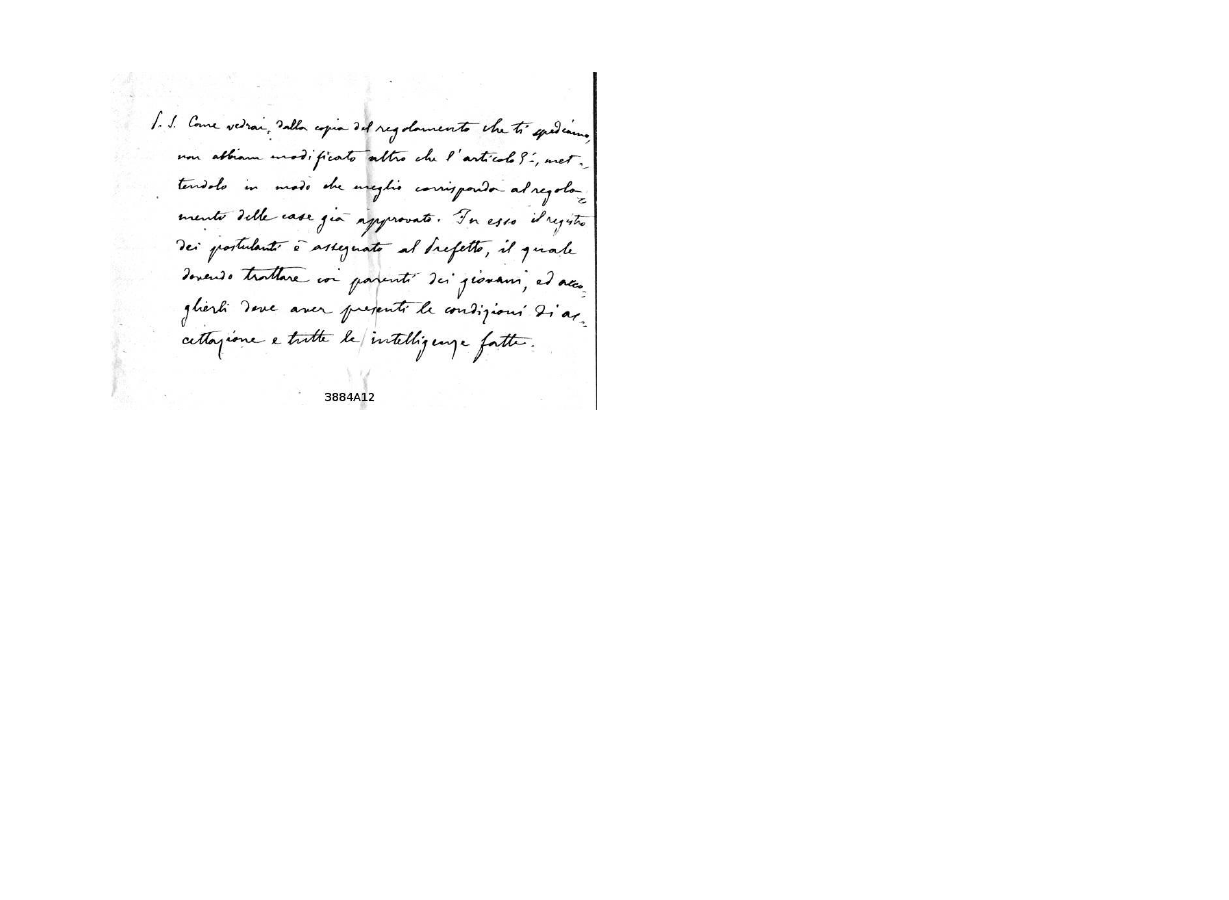 P. S. Come vedrai, dalla copia del regolamento che ti spediamo,
non abbiamo modificato altro che l'articolo 8°, met-
tendolo in modo che meglio corrisponda al regola-
mento delle case già approvato. In esso il registro
dei postulanti è assegnato al Prefetto, il quale
dovendo trattare coi parenti dei giovani, ed acco-
glierli deve aver presenti le condizioni di ac-
cettazione e tutte le intelligenze fatte.
3884A12